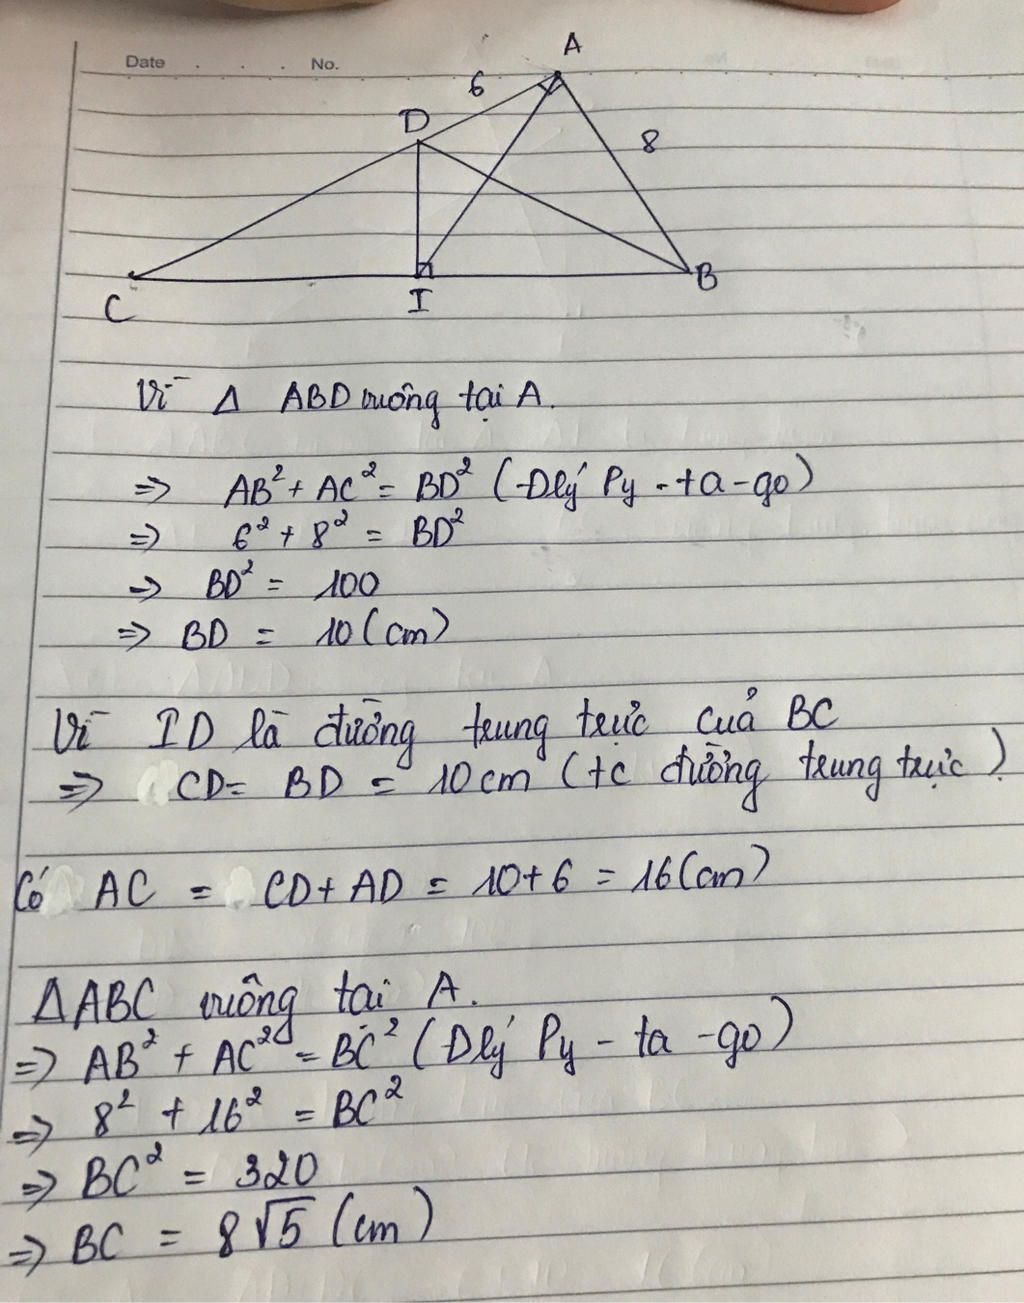 Date . . . No.
A
6
D
8
C
I
B
Vì Δ ABD vuông tại A.
=> AB² + AC² = BD² (Đlý Py - ta - go)
=> 6² + 8² = BD²
=> BD² = 100
=> BD = 10 (cm)
Vì ID là đường trung trực của BC
=> CD = BD = 10cm (tc đường trung trực)
Có AC = CD + AD = 10 + 6 = 16 (cm)
ΔABC vuông tại A.
=> AB² + AC² = BC² (Đlý Py - ta - go)
=> 8² + 16² = BC²
=> BC² = 320
=> BC = 8√5 (cm)